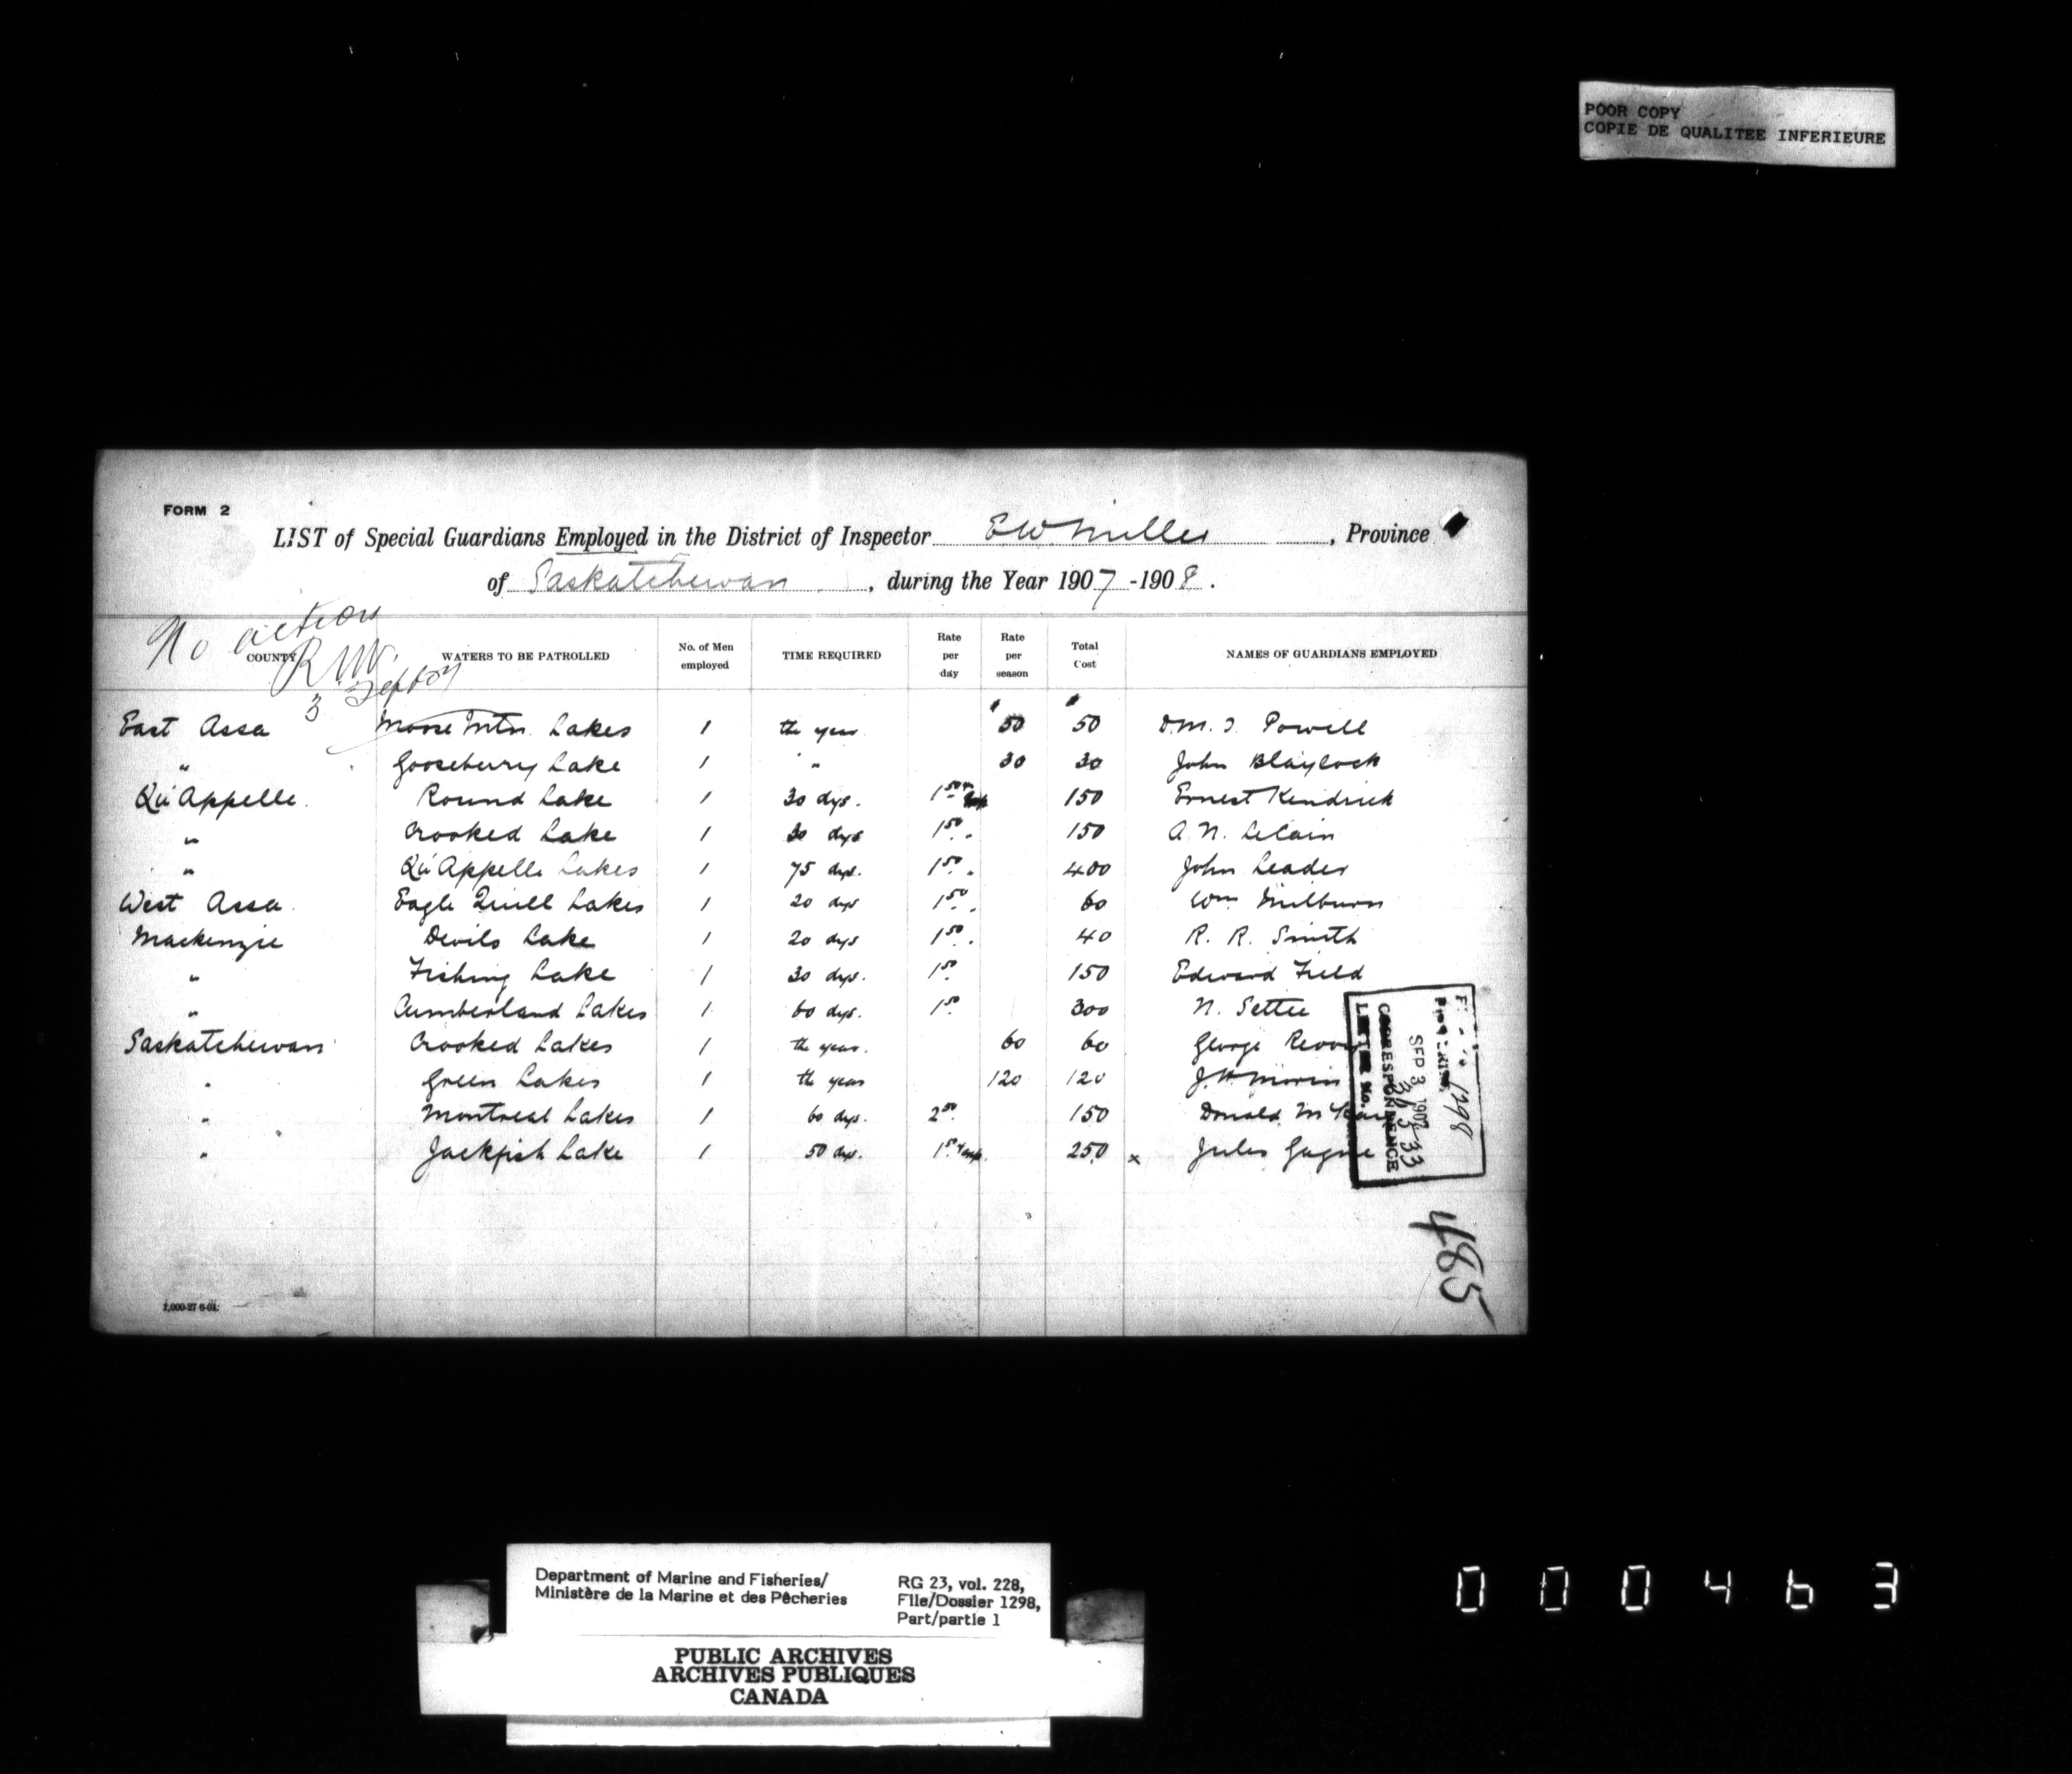 POOR COPY
COPIE DE QUALITEE INFERIEURE
FORM 2
LIST of Special Guardians Employed in the District of Inspector EW Miller, Province
of Saskatchewan, during the Year 1907-1908.
No action
R.W.
3 Sept 07
COUNTY WATERS TO BE PATROLLED No. of Men employed TIME REQUIRED Rate per day Rate per season Total Cost NAMES OF GUARDIANS EMPLOYED
East Assa Moose Mtn. Lakes 1 the year 50 50 Powell
" Gooseberry Lake 1 " 30 30 John Blaylock
Qu'Appelle Round Lake 1 30 dys. 1 50 150 Ernest Kendrick
" Crooked Lake 1 30 dys 1 50 " 150 A. N. LeCain
" Qu'Appelle Lakes 1 75 dys. 1 50 " 400 John Leader
West Assa. Eagle Quill Lakes 1 20 dys 1 50 " 60 Wm Milburn
Mackenzie Devils Lake 1 20 dys 1 50 " 40 R. R. Smith
" Fishing Lake 1 30 dys. 1 50 150 Edward Field
" Cumberland Lakes 1 60 dys. 1 50 300 N. Settee
Saskatchewan Crooked Lakes 1 the year. 60 60 George
" Green Lakes 1 the year 120 120 J. H. Morin
" Montreal Lakes 1 60 dys. 2 50 150 Donald
" Jackfish Lake 1 50 dys. 1 50 250 x Jules Gagne
1298
SEP 3 1907
CORRESPONDENCE
LETTER No.
485
1,000-27 6-01.
Department of Marine and Fisheries/
Ministère de la Marine et des Pêcheries
RG 23, vol. 228,
File/Dossier 1298,
Part/partie 1
PUBLIC ARCHIVES
ARCHIVES PUBLIQUES
CANADA
000463